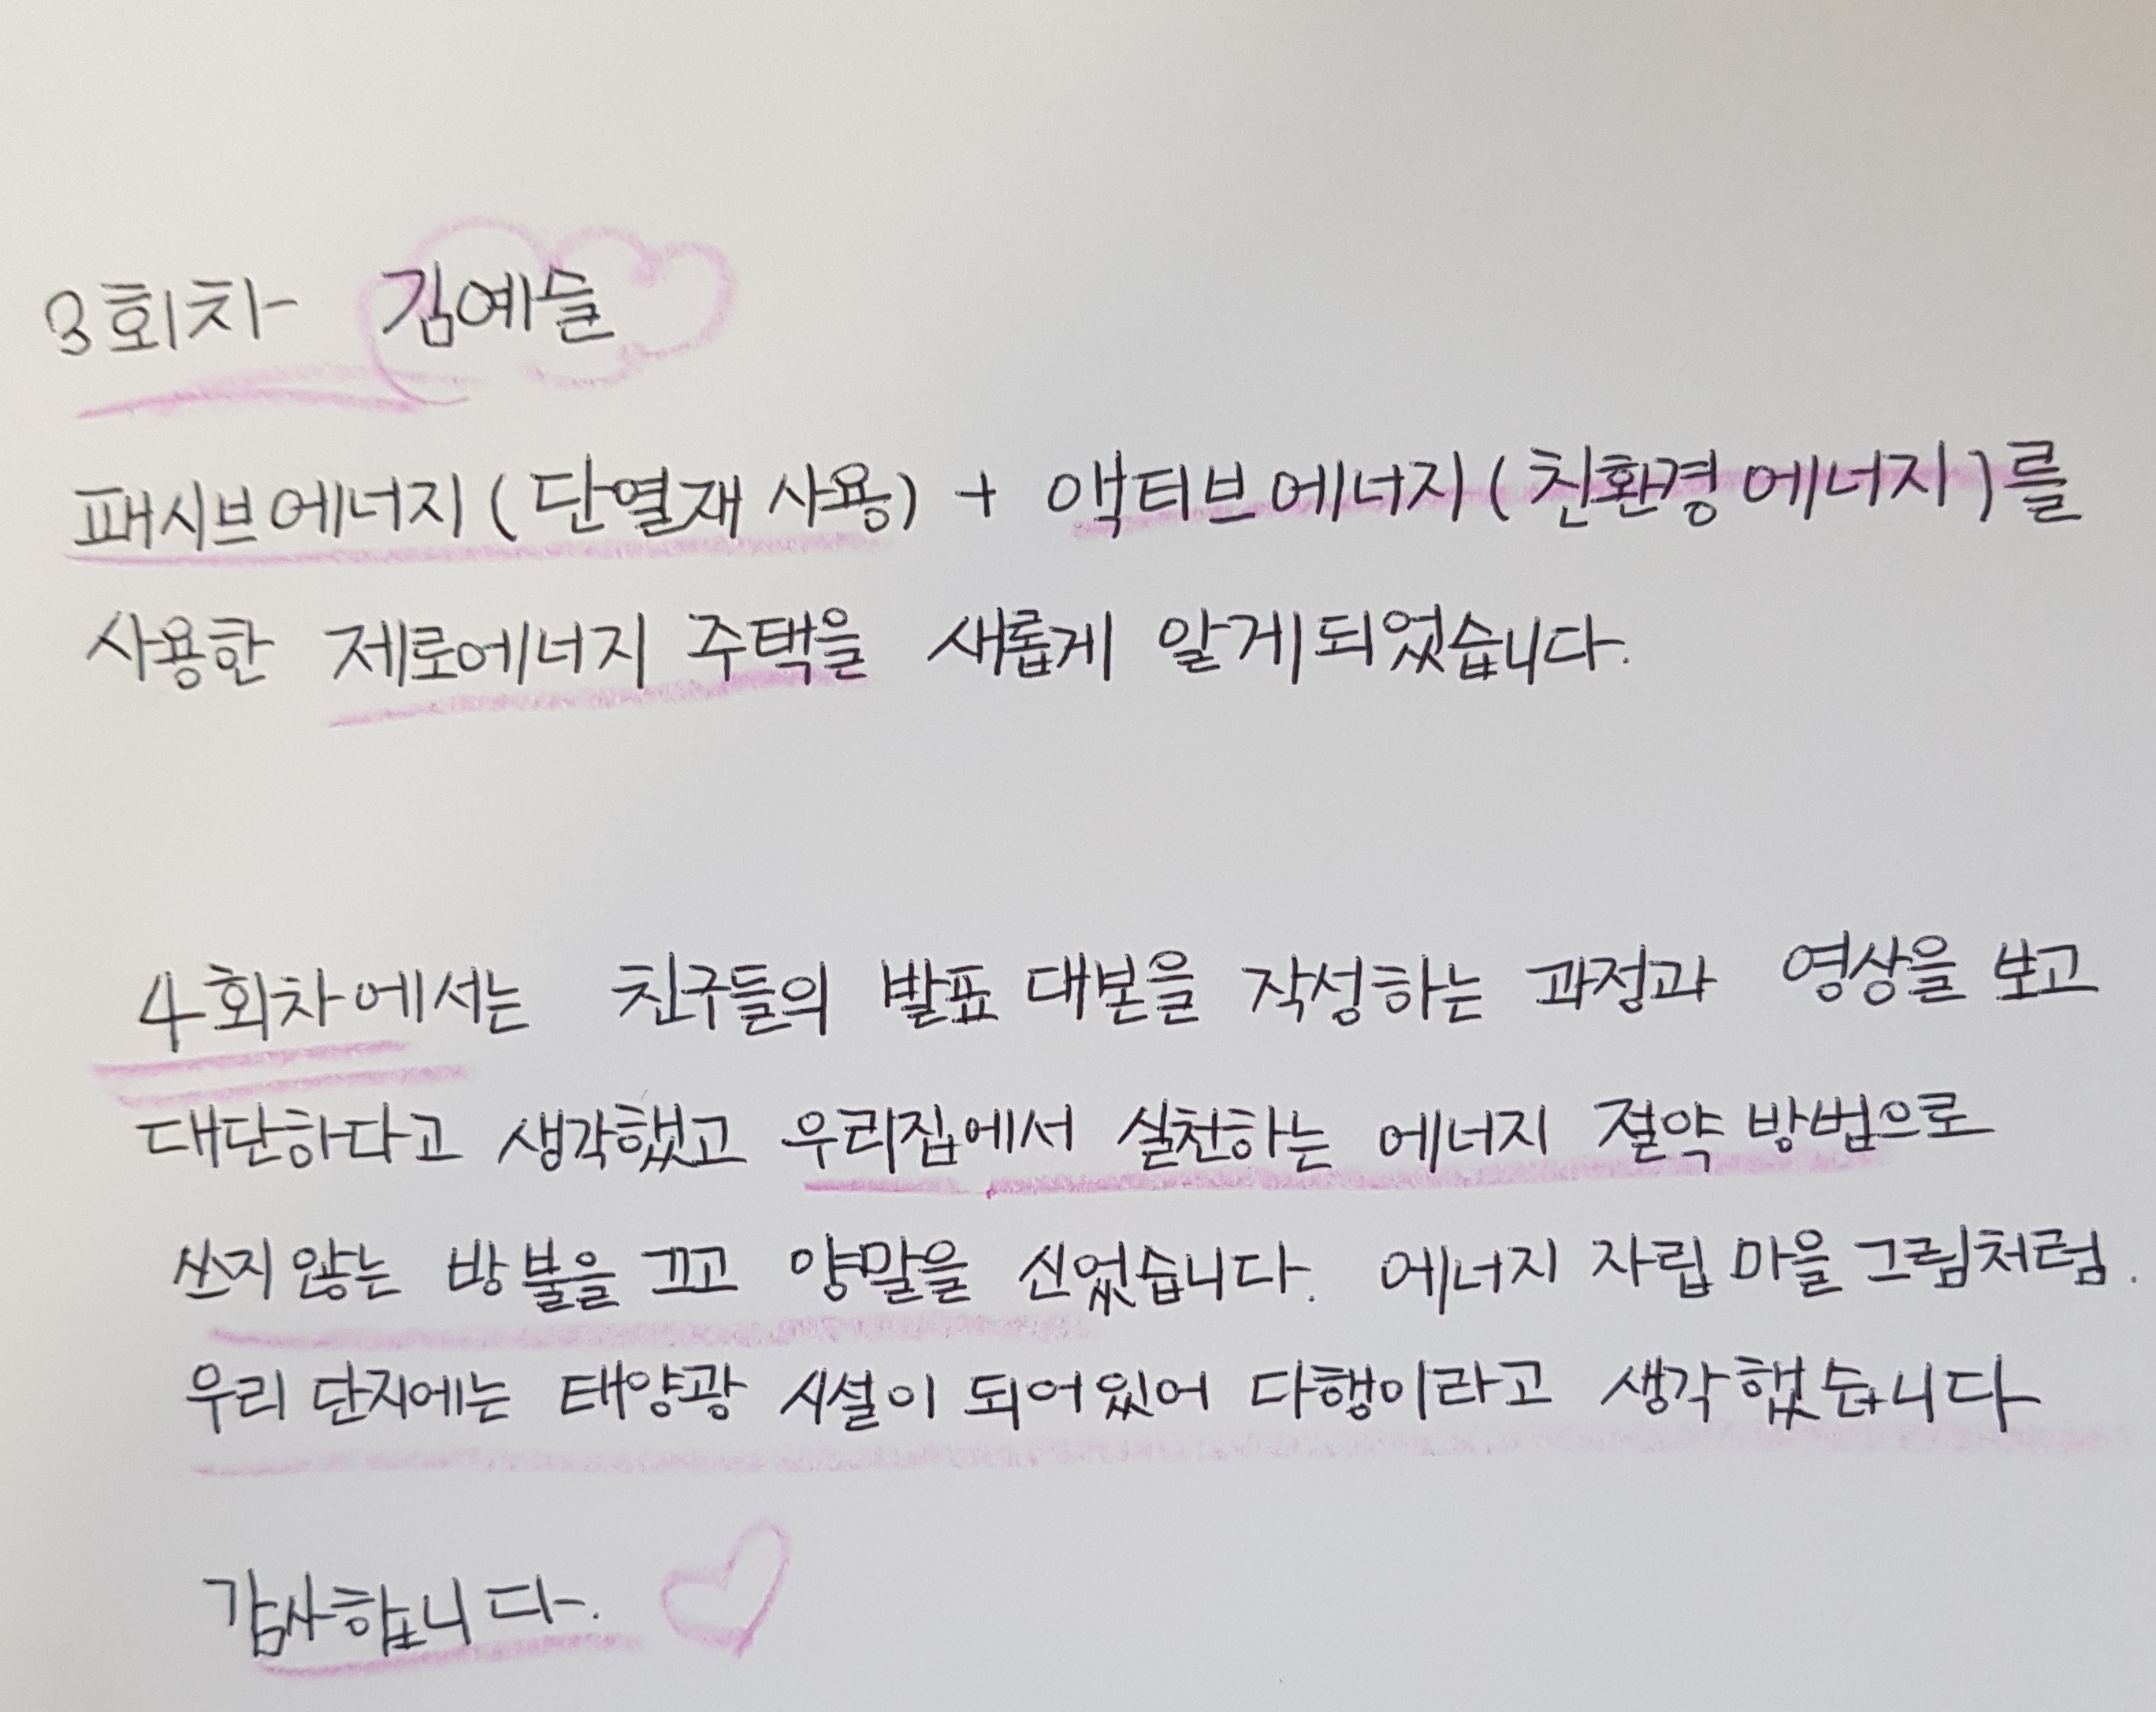 3회차 김예슬
패시브에너지(단열재 사용) + 액티브에너지(친환경에너지)를
사용한 제로에너지 주택을 새롭게 알게되었습니다.
4회차에서는 친구들의 발표 대본을 작성하는 과정과 영상을 보고
대단하다고 생각했고 우리집에서 실천하는 에너지 절약 방법으로
쓰지 않는 방 불을 끄고 양말을 신었습니다. 에너지 자립 마을 그림처럼.
우리 단지에는 태양광 시설이 되어있어 다행이라고 생각했습니다
감사합니다.